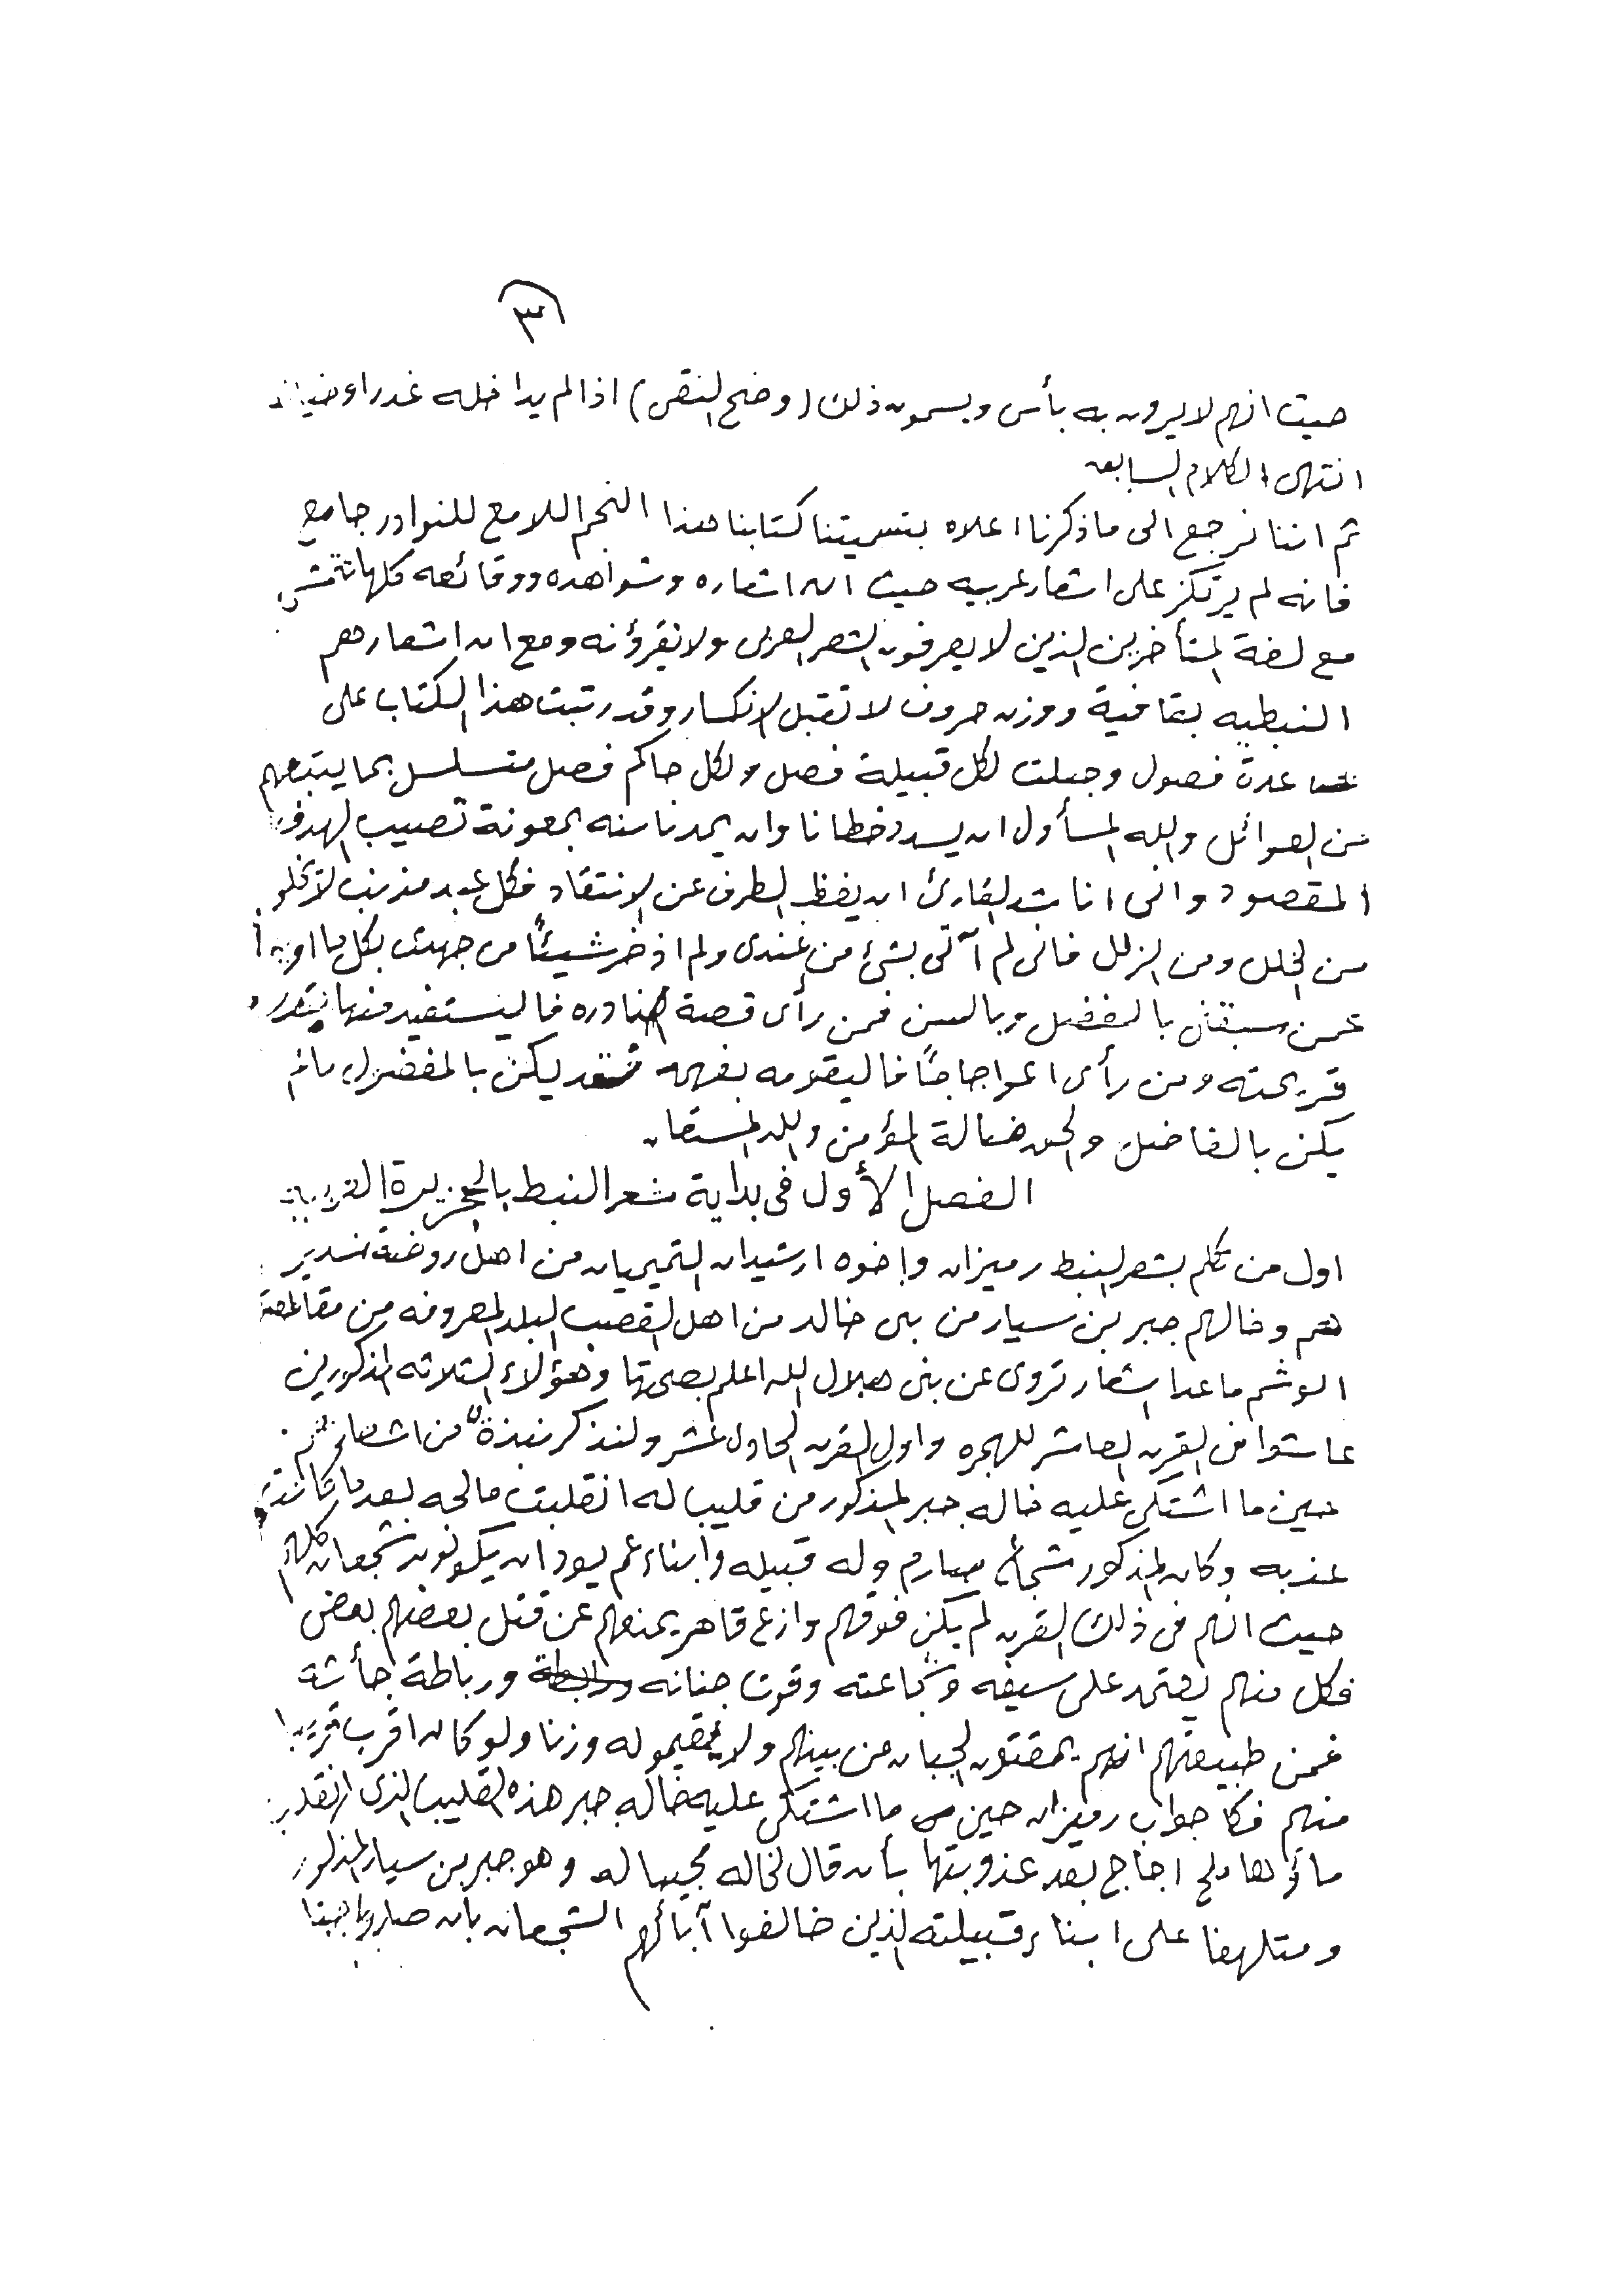 (٣)
حيث انهم لا يرون به بأس ويسمون ذلك (وضح النقى) اذا لم يداخله غدر او خيانه
انتهى الكلام السابق
ثم اننا نرجع الى ما ذكرنا اعلاه بتسميتنا كتابنا هذا النجم اللامع للنوادر جامع
فانه لم يرتكز على اشعار عربيه حيث ان اشعاره وشواهده ووقائعه كلها تتمشى
مع لغة المتأخرين الذين لا يعرفون الشعر العربى ولا يقرؤنه ومع ان اشعارهم
النبطيه بقافية ووزن حروف لا تقبل الانكسار وقد رتبت هذا الكتاب على
عدة فصول وجعلت لكل قبيلة فصل ولكل حاكم فصل متسلسل بما يتبعهم
من العوائل والله المسأول ان يسدد خطانا وان يمدنا منه بمعونة تصيب الهدف
المقصود وانى اناشد القارئ ان يغظ الطرف عن الانتقاد فكل عبد مذنب لا تخلو
من الخلل ومن الزلل فانى لم آتى بشئ من عندى ولم اذخر شيئًا من جهدى بكل ما
عمن سبقنى بالفضل وبالسن فمن رأى قصة نادره فاليستفيد منها
قريحته ومن رأى اعواجاجًا فاليقومه بفهمه فقد يكن بالمفضول مالم
يكن بالفاضل والحق ضالة المؤمن والله المستعان
الفصل الأول فى بداية شعر النبط بالجزيرة العربية
اول من تكلم بشعر النبط رميزان وإخوه ارشيدان التميميان من اهل روضة سدير
هم وخالهم جبر بن سيار من بنى خالد من اهل القصب البلد المعروفه من مقاطعة
الوشم ماعدا اشعار تروى عن بنى هلال الله اعلم بصحتها وهؤلاء الثلاثه المذكورين
عاشوا فى القرن العاشر للهجره واول القرن الحادى عشر ولنذكر نبذةً من اشعارهم
حين ما اشتكى عليه خاله جبر المذكور من قليب له انقلبت مالحه بعد ما كانت
عذبه وكان المذكور شجاع صارم وله قبيله وابناء عم يود ان يكونون شجعان كلهم
حيث انهم فى ذلك القرن لم يكن فوقهم وازع قاهر يمنعهم عن قتل بعضهم بعض
فكل منهم يعتمد على سيفه وشجاعته وقوت جنانه ورباطة جأشه
فمن طبيعتهم انهم يمقتون الجبان من بينهم ولا يقيمو له وزنا ولو كان اقرب قريب
منهم فكا جواب رميزان حين ما اشتكى عليه خاله جبر هذه القليب الذى انقلب
ماؤها ملح اجاج بعد عذوبتها بأن قال لخاله مجيبا له وهو جبر بن سيار المذكور
ومتلهفا على ابناء قبيلته الذين خالفوا آبائهم الشجعان بان صاروا